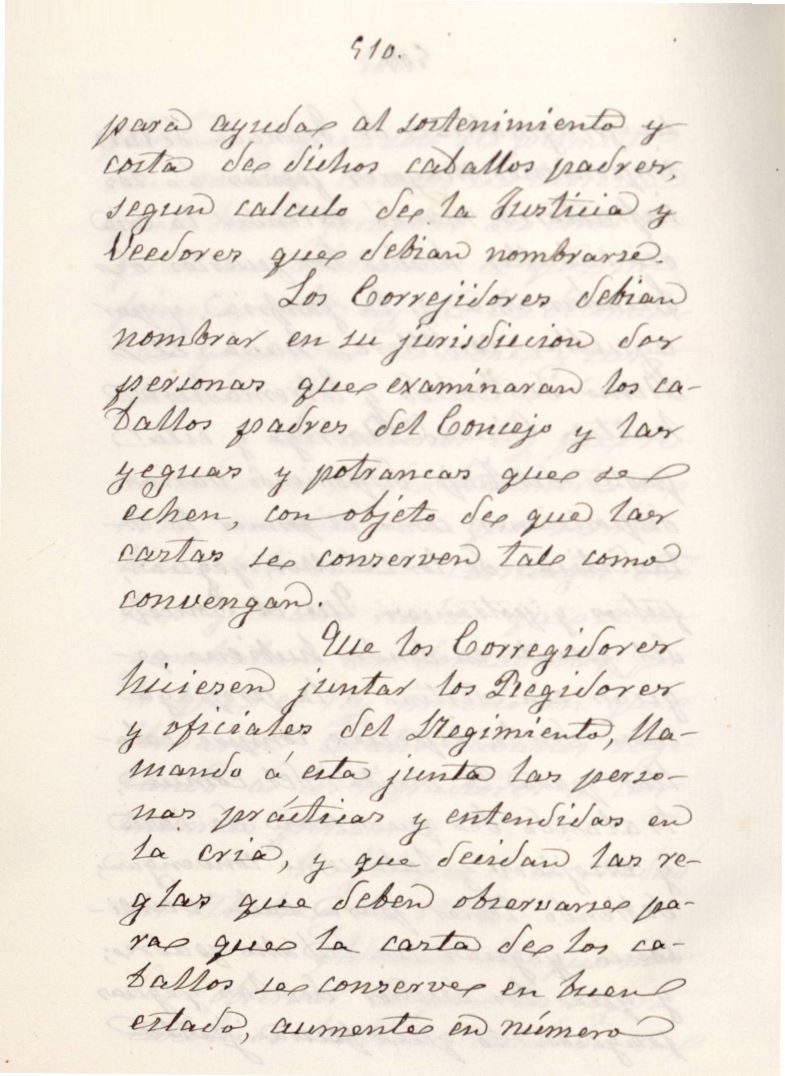 510.
para ayuda al sostenimiento y
costa de dichos caballos padres,
segun calculo de la Justicia y
Veedores que debian nombrarse.
Los Correjidores debian
nombrar en su jurisdiccion dos
personas que examinaran los ca-
ballos padres del Concejo y las
yeguas y potrancas que se
echen, con objeto de que las
castas se conserven tal como
convengan.
Que los Corregidores
hiciesen juntar los Regidores
y oficiales del Regimiento, lla-
mando á esta junta las perso-
nas prácticas y entendidas en
la cria, y que decidan las re-
glas que deben observarse pa-
ra que la casta de los ca-
ballos se conserve en buen
estado, aumente en número